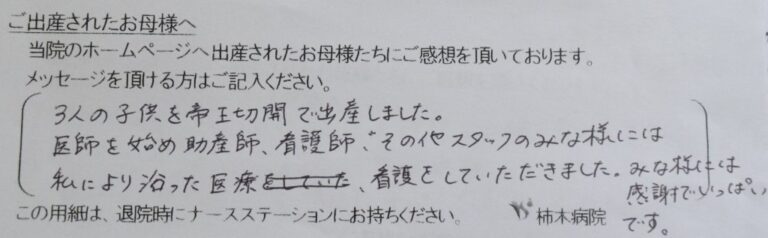 ご出産されたお母様へ
当院のホームページへ出産されたお母様たちにご感想を頂いております。
メッセージを頂ける方はご記入ください。
3人の子供を帝王切開で出産しました。
医師を始め助産師、看護師、その他スタッフのみな様には
私により沿った医療をしていた、看護をしていただきました。みな様には
感謝でいっぱい
です。
この用紙は、退院時にナースステーションにお持ちください。 柿木病院